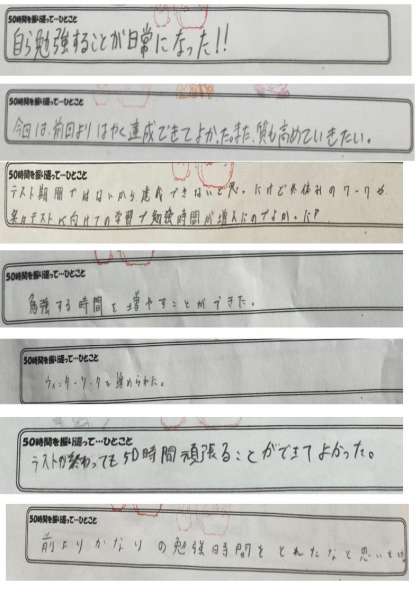 50時間を振り返って…ひとこと
自ら勉強することが日常になった!!
50時間を振り返って…ひとこと
今回は、前回よりはやく達成できてよかった。また、質も高めていきたい。
50時間を振り返って…ひとこと
テスト期間ではないから達成できないと思
学習で勉強時間が増えたのでよかった
50時間を振り返って…ひとこと
勉強する時間を増やすことができた。
50時間を振り返って…ひとこと
ウィンターワークを進められた。
50時間を振り返って…ひとこと
テストが終わっても50時間頑張ることができてよかった。
50時間を振り返って…ひとこと
前よりかなりの勉強時間をとれたなと思います